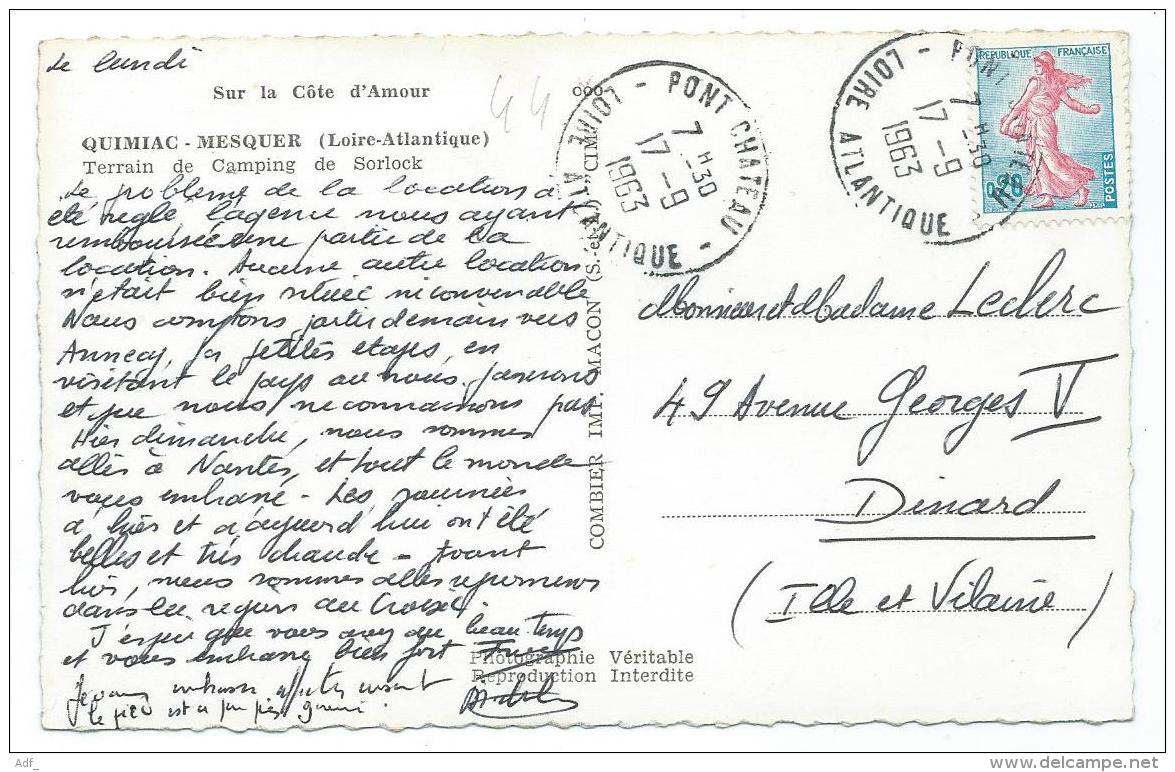 Le lundi
Sur la Côte d'Amour
QUIMIAC - MESQUER (Loire-Atlantique)
Terrain de Camping de Sorlock
Le problème de la location a
été réglé, l'agence nous ayant
remboursé une partie de la
location. Aucune autre location
n'était bien située ni convenable
Nous comptons partir demain vers
Annecy, par petites étapes, en
visitant le pays où nous passerons
et que nous ne connaissons pas
Hier dimanche, nous sommes
allés à Nantes, et tout le monde
vous embrasse - Les journées
d'hier et d'aujourd'hui ont été
belles et très chaude - Avant
hier, nous sommes allés
dans la région du Croisic.
J'espère que vous avez du beau temps
et vous embrasse bien fort
Je vous embrasse
le pied est à peu près guéri.
Photographie Véritable
Reproduction Interdite
COMBIER IMP. MACON (S.-et-L.) CIM
44
PONT CHATEAU -
LOIRE ATLANTIQUE -
7 H 30
17 - 9
1963
PONT CHATEAU
LOIRE ATLANTIQUE -
7 H 30
17 - 9
1963
REPUBLIQUE FRANÇAISE
0,20
POSTES
Monsieur et Madame Leclerc
49 Avenue Georges V
Dinard
(Ille et Vilaine)
Adf_
www.delcampe.net